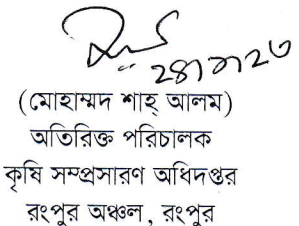 (মোহাম্মদ শাহ্ আলম)
অতিরিক্ত পরিচালক
কৃষি সম্প্রসারণ অধিদপ্তর
রংপুর অঞ্চল, রংপুর